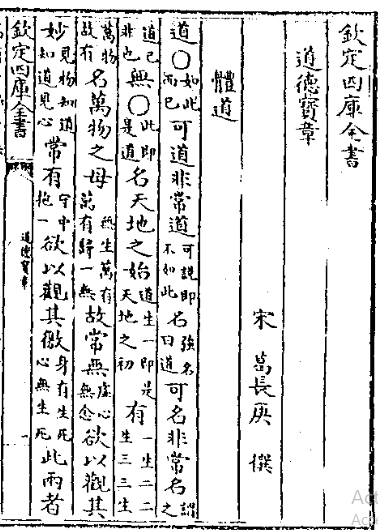 欽定四庫全書
道德寶章
宋 葛長庚 撰
體道
道〇如此而已可道非常道可說即不如此名強名曰道可名非常名謂之
道已非也無〇此即是道名天地之始道生一即是天地之初有一生二二生三三生
萬物故有名萬物之母無生萬有萬有歸一無故常無虛心無念欲以觀其
妙見物知道知道見心常有守中抱一欲以觀其徼身有生死心無生死此兩者
欽定四庫全書
道德寶章
一